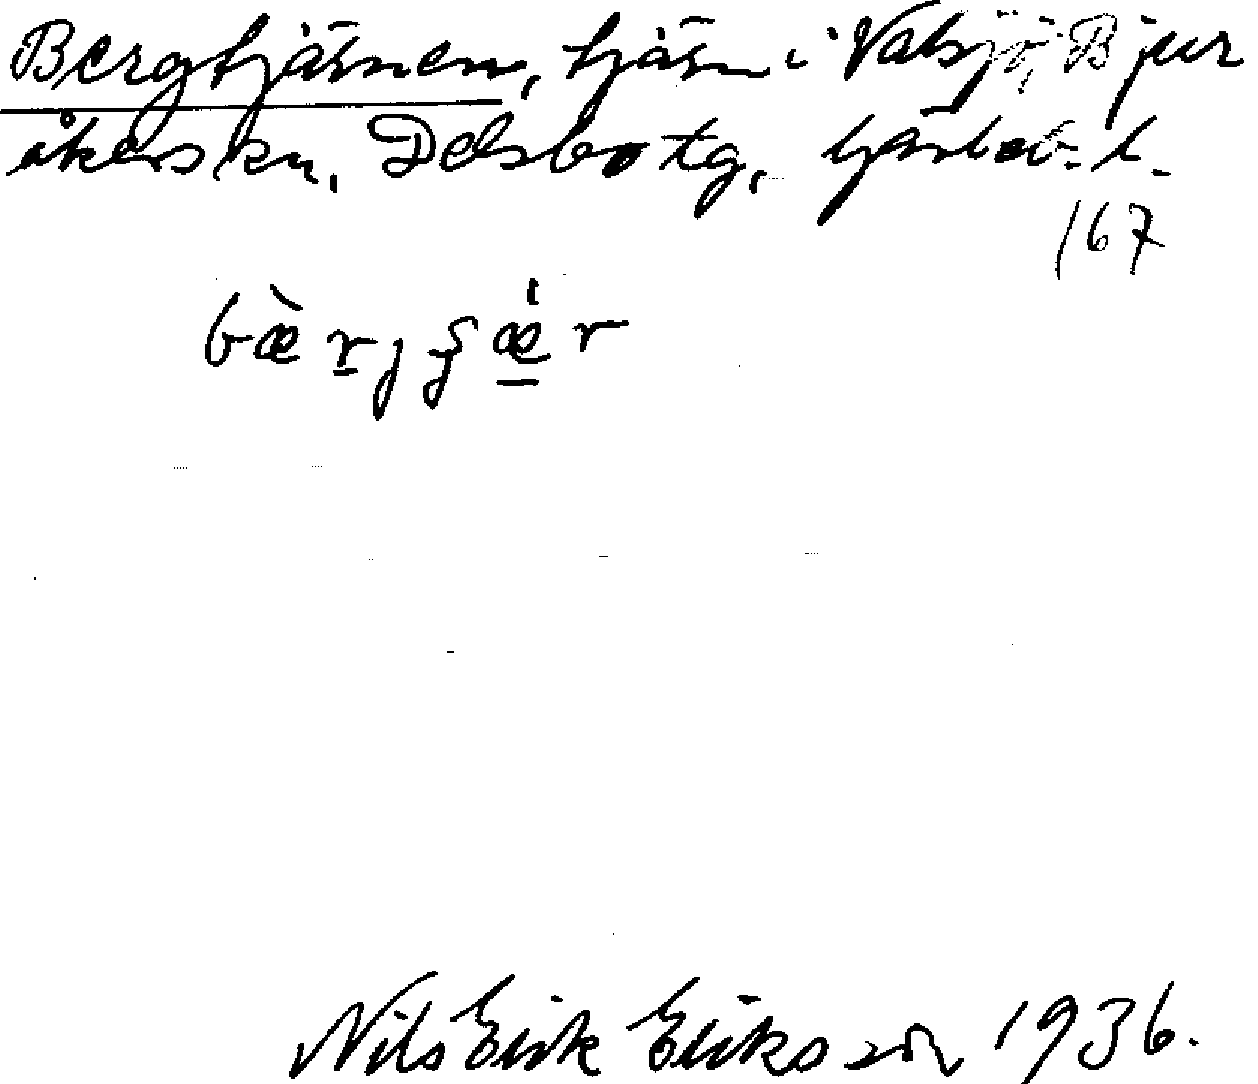 Bergtjärnen, tjärn i Valsjö, Bjur
åkers sn, Delsbo tg, Gävleb. l.
167
bæ̀r̠jʂǽ̠r
Nils Erik Eriksson 1936.